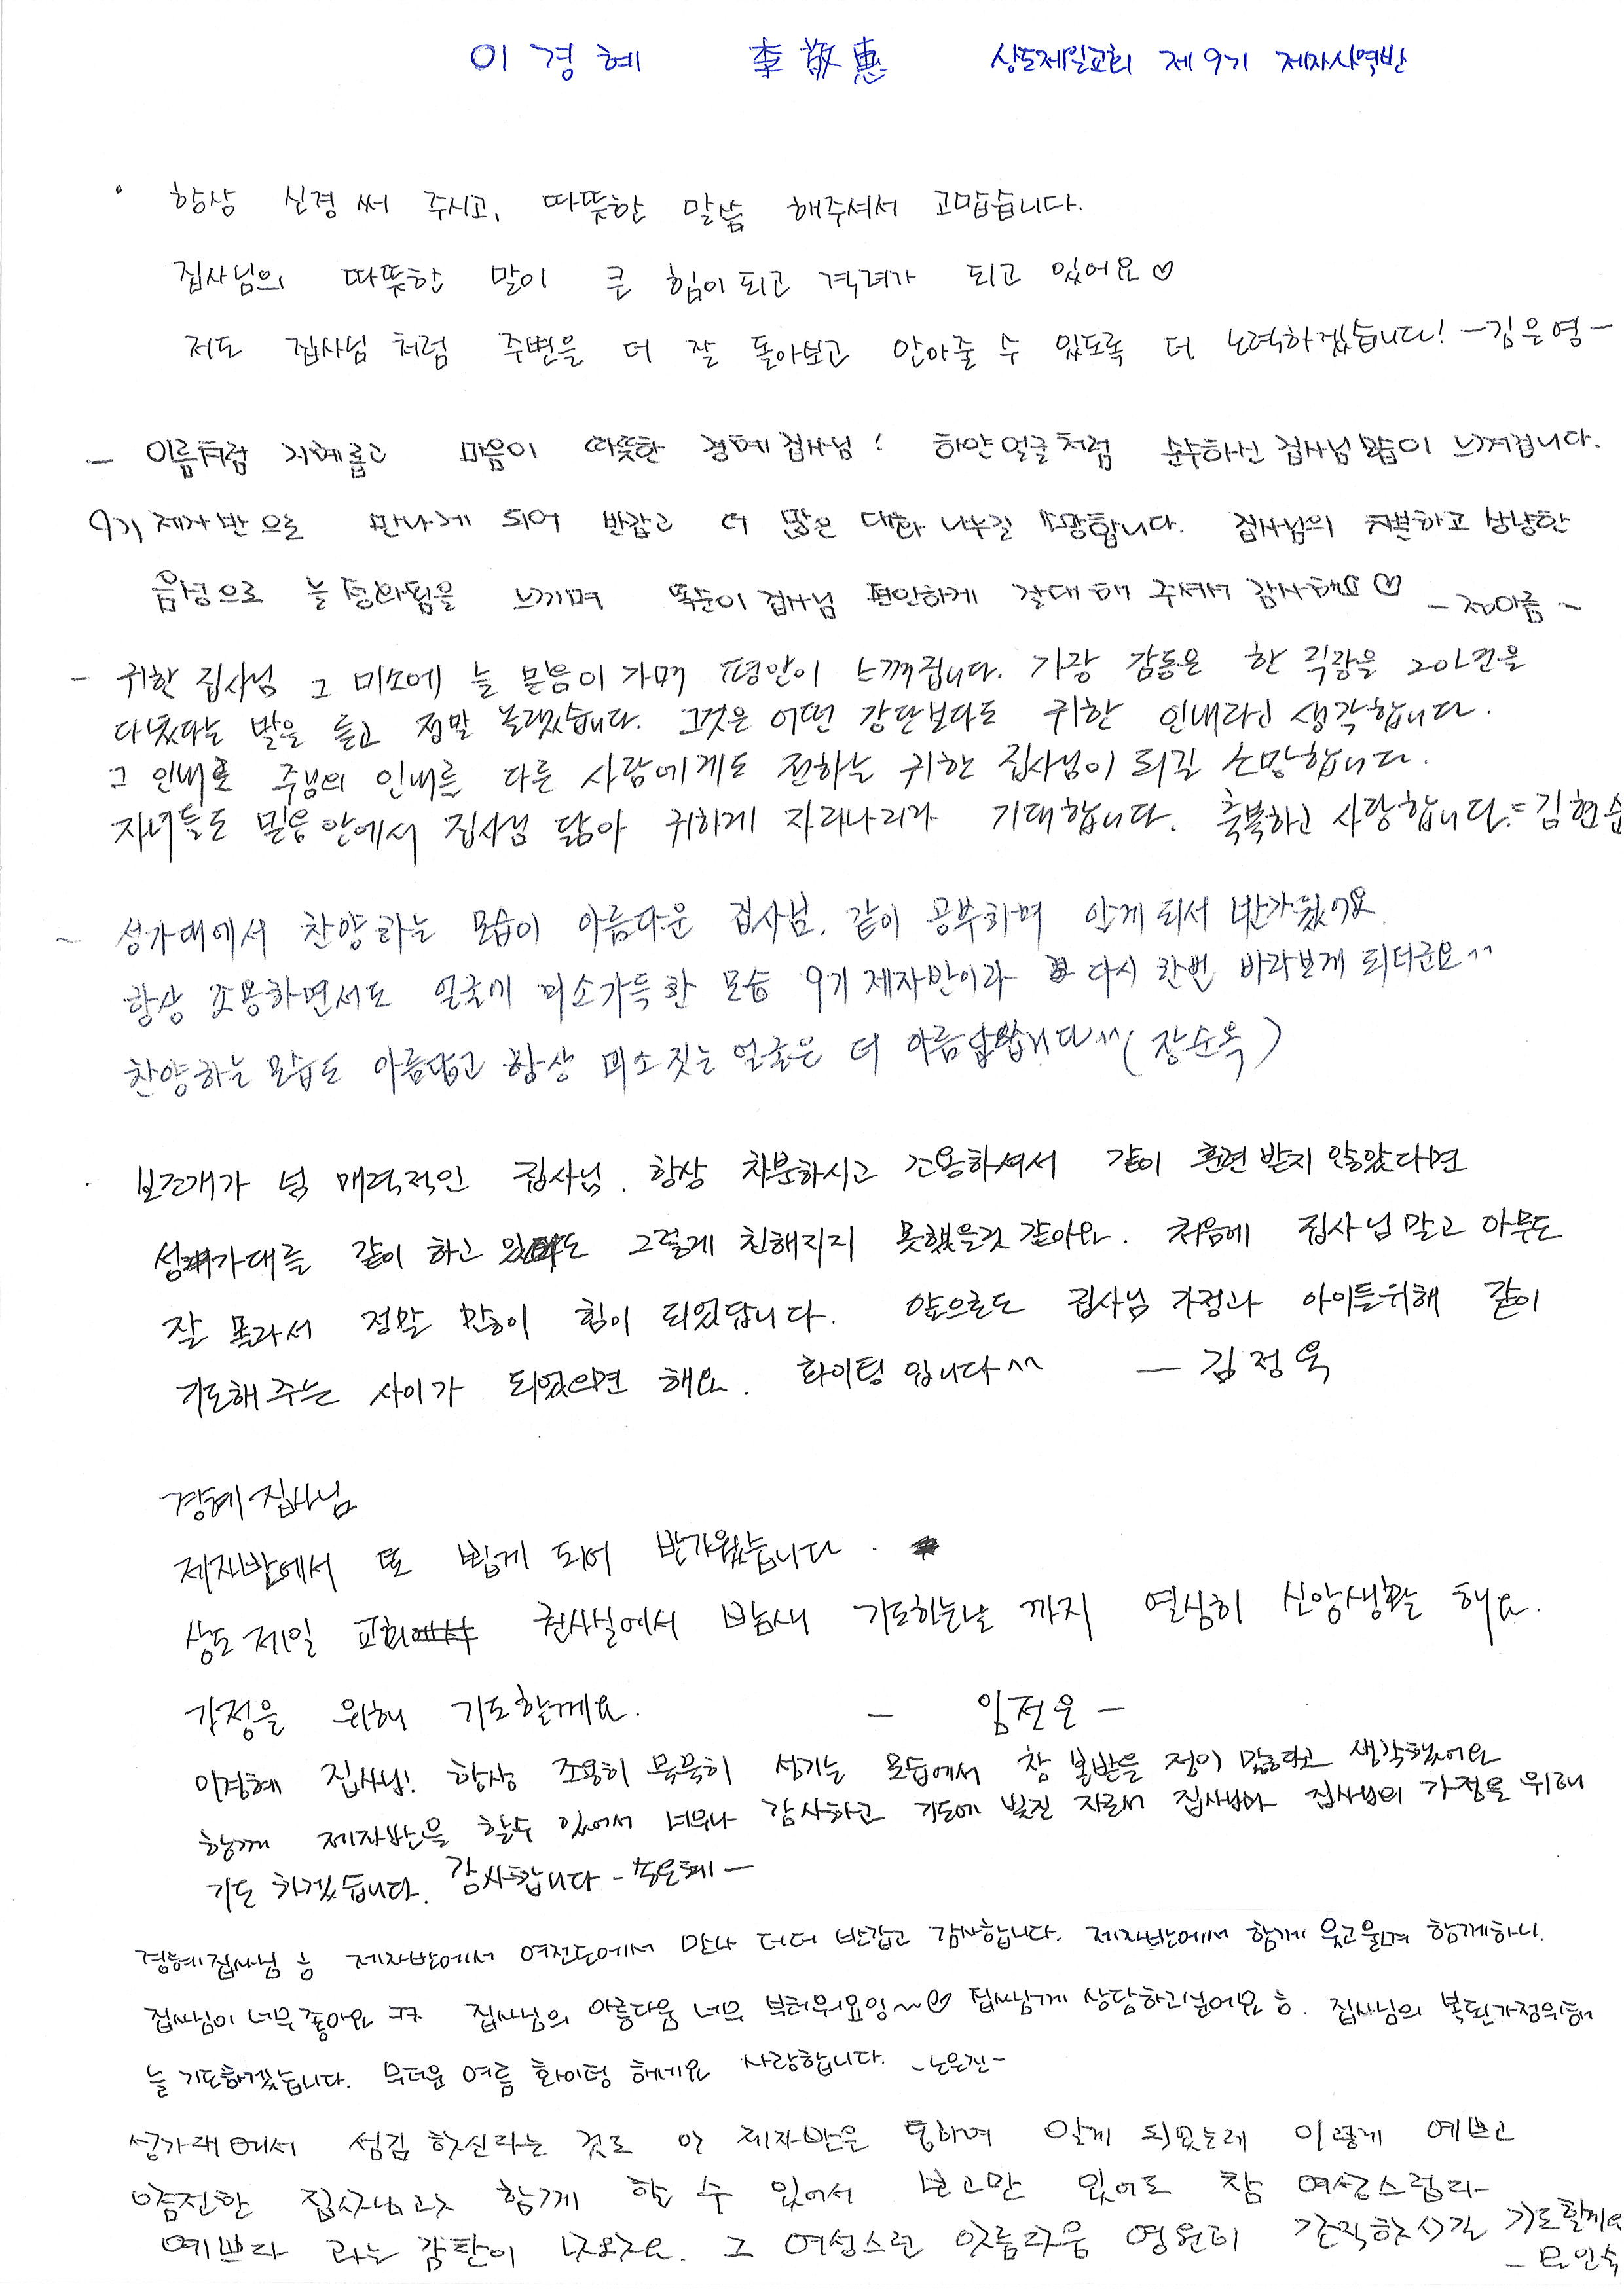 이 경 혜 李敬惠 상도제일교회 제 9기 제자사역반
• 항상 신경 써 주시고, 따뜻한 말씀 해주셔서 고맙습니다.
집사님의 따뜻한 말이 큰 힘이 되고 격려가 되고 있어요♡
저도 집사님 처럼 주변을 더 잘 돌아보고 안아줄 수 있도록 더 노력하겠습니다! -김은영-
- 이름처럼 지혜롭고 마음이 따뜻한 경혜 집사님! 하얀 얼굴처럼 순수하신 집사님 모습이 느껴집니다.
9기 제자반으로 만나게 되어 반갑고 더 많은 대화 나누길 소망합니다. 집사님의 차분하고 상냥한
음성으로 늘 정화됨을 느끼며 똑순이 집사님 편안하게 잘대해 주셔서 감사해요♡ -정아름-
- 귀한 집사님 그 미소에 늘 믿음이 가며 평안이 느껴집니다. 가장 감동은 한 직장을 20년간을
다녔다는 말을 듣고 정말 놀랬습니다. 그것은 어떤 강단보다도 귀한 인내라고 생각합니다.
그 인내로 주님의 인내를 다른 사람에게도 전하는 귀한 집사님이 되길 소망합니다.
자녀들도 믿음안에서 집사님 닮아 귀하게 자라나리라 기대합니다. 축복하고 사랑합니다.=김현숙
~ 성가대에서 찬양하는 모습이 아름다운 집사님. 같이 공부하며 알게 되서 반가웠어요.
항상 조용하면서도 얼굴에 미소가득한 모습 9기 제자반이라 다시 한번 바라보게 되더군요^^
찬양하는 모습도 아름답고 항상 미소짓는 얼굴은 더 아름답습니다^^ (장순옥)
. 보조개가 넘 매력적인 집사님. 항상 차분하시고 조용하셔서 같이 훈련 받지 않았다면
성가대를 같이 하고 있어도 그렇게 친해지지 못했을것 같아요. 처음에 집사님말고 아무도
잘 몰라서 정말 많이 힘이 되었답니다. 앞으로도 집사님 가정과 아이들위해 같이
기도해 주는 사이가 되었으면 해요. 화이팅 입니다^^ - 김정옥
경혜 집사님
제자반에서 또 뵙게 되어 반가웠습니다.
상도 제일 교회 권사실에서 밤새 기도하는날 까지 열심히 신앙생활 해요.
가정을 위해 기도할께요. - 임전은 -
이경혜 집사님! 항상 조용히 묵묵히 섬기는 모습에서 참 본받을 점이 많다고 생각했어요
함께 제자반을 할수 있어서 너무나 감사하고 기도에 빚진 자로서 집사님과 집사님의 가정을 위해
기도 하겠습니다. 감사합니다 -송은혜-
경혜집사님 ㅎ 제자반에서 여전도에서 만나 더더 반갑고 감사합니다. 제자반에서 함께 웃고울며 함께하니.
집사님이 너무 좋아요 ㅋㅋ 집사님의 아름다움 너무 부러워요잉~♡ 집사님께 상담하고싶어요ㅎ. 집사님의 복된가정위해
늘 기도하겠습니다. 무더운 여름 화이팅 하세요 사랑합니다. -노은진-
성가대에서 섬김 하신다는 것도 이 제자반은 통하여 알게 되었는데 이렇게 예쁘고
얌전한 집사님과 함께 할 수 있어서 보고만 있어도 참 여성스럽다
예쁘다 라는 감탄이 나오지요. 그 여성스런 아름다움 영원히 간직하시길 기도할께요